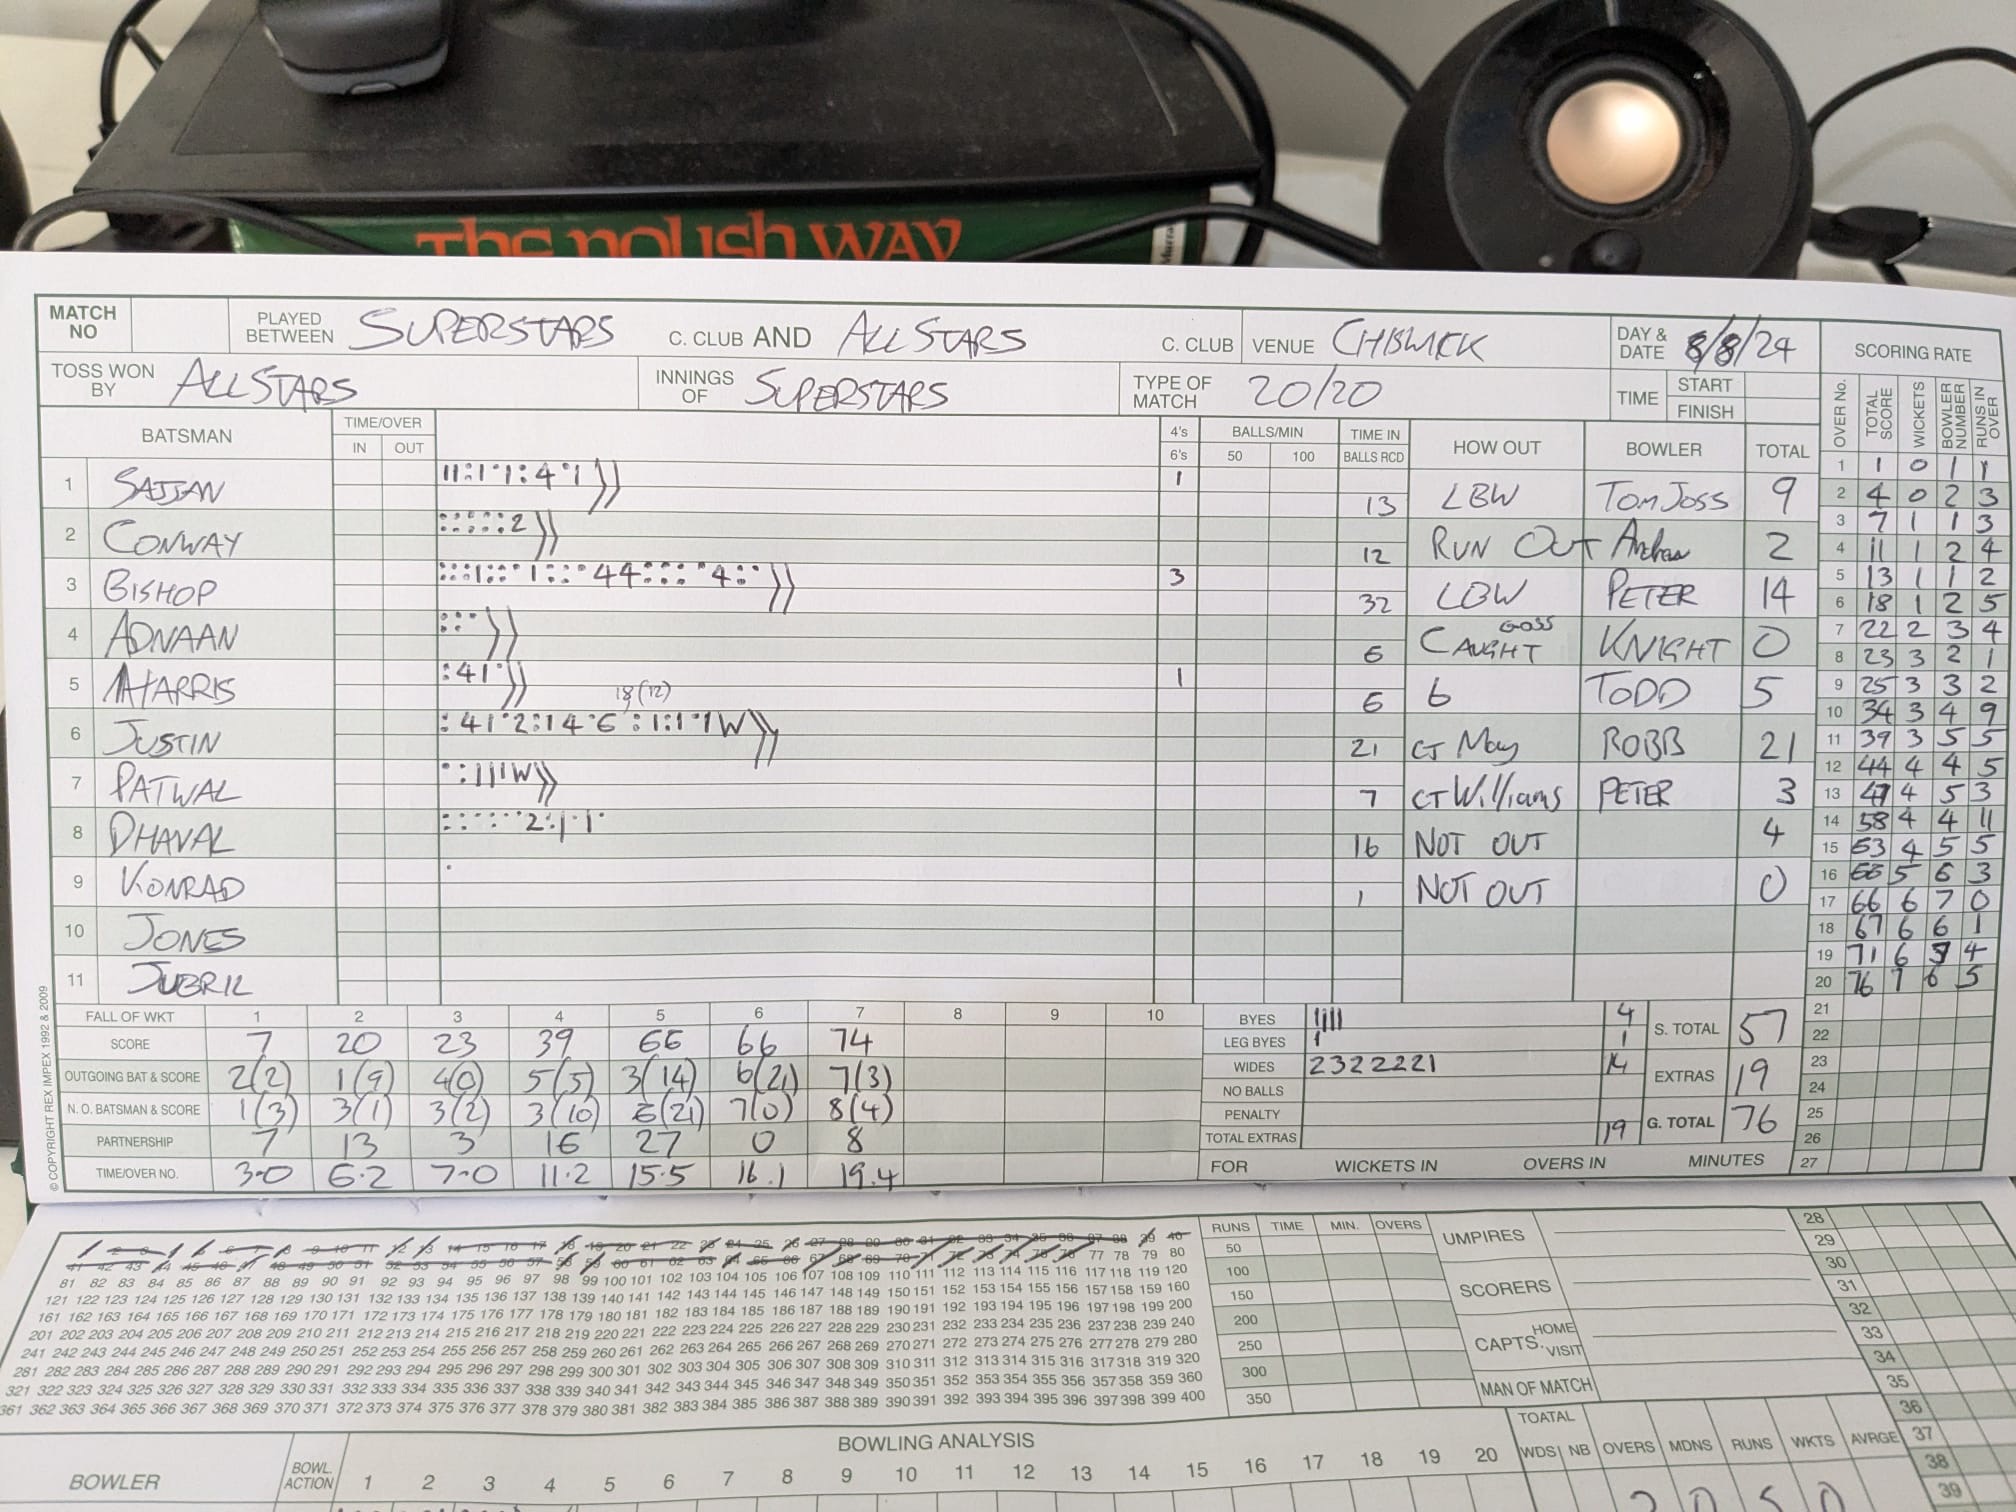 The polish WAY
MATCH NO
PLAYED BETWEEN SUPERSTARS C. CLUB AND ALLSTARS C. CLUB
VENUE CHISWICK
DAY & DATE 8/8/24
SCORING RATE
TOSS WON BY ALLSTARS
INNINGS OF SUPERSTARS
TYPE OF MATCH 20/20
TIME START
FINISH
OVER No. TOTAL SCORE WICKETS BOWLER NUMBER RUNS IN OVER
BATSMAN TIME/OVER IN OUT 4's 6's BALLS/MIN 50 100 TIME IN BALLS RCD HOW OUT BOWLER TOTAL
1 SAJJAN 1 13 LBW TOM JOSS 9
2 CONWAY 12 RUN OUT 2
3 BISHOP 3 32 LBW PETER 14
4 ADNAAN 6 CAUGHT GOSS KNIGHT 0
5 HARRIS 1 6 b TODD 5
18(12)
6 JUSTIN 21 CT May ROBB 21
7 PATWAL 7 CT Williams PETER 3
8 DHAVAL 16 NOT OUT 4
9 KONRAD 1 NOT OUT 0
10 JONES
11 JUBRIL
1 1 0 1 1
2 4 0 2 3
3 7 1 1 3
4 11 1 2 4
5 13 1 1 2
6 18 1 2 5
7 22 2 3 4
8 23 3 2 1
9 25 3 3 2
10 34 3 4 9
11 39 3 5 5
12 44 4 4 5
13 47 4 5 3
14 58 4 4 11
15 63 4 5 5
16 66 5 6 3
17 66 6 7 0
18 67 6 6 1
19 71 6 4
20 76 7 6 5
21
22
23
24
25
26
27
FALL OF WKT 1 2 3 4 5 6 7 8 9 10
SCORE 7 20 23 39 66 66 74
OUTGOING BAT & SCORE 2(2) 1(9) 4(0) 5(5) 3(14) 6(21) 7(3)
N. O. BATSMAN & SCORE 1(3) 3(1) 3(2) 3(10) 6(21) 7(0) 8(4)
PARTNERSHIP 7 13 3 16 27 0 8
TIME/OVER NO. 3.0 6.2 7.0 11.2 15.5 16.1 19.4
BYES 4
LEG BYES 1
WIDES 2322221 14
NO BALLS
PENALTY
TOTAL EXTRAS 19
S. TOTAL 57
EXTRAS 19
G. TOTAL 76
FOR WICKETS IN OVERS IN MINUTES
© COPYRIGHT REX IMPEX 1992 & 2009
77 78 79 80
81 82 83 84 85 86 87 88 89 90 91 92 93 94 95 96 97 98 99 100 101 102 103 104 105 106 107 108 109 110 111 112 113 114 115 116 117 118 119 120
121 122 123 124 125 126 127 128 129 130 131 132 133 134 135 136 137 138 139 140 141 142 143 144 145 146 147 148 149 150 151 152 153 154 155 156 157 158 159 160
161 162 163 164 165 166 167 168 169 170 171 172 173 174 175 176 177 178 179 180 181 182 183 184 185 186 187 188 189 190 191 192 193 194 195 196 197 198 199 200
201 202 203 204 205 206 207 208 209 210 211 212 213 214 215 216 217 218 219 220 221 222 223 224 225 226 227 228 229 230 231 232 233 234 235 236 237 238 239 240
241 242 243 244 245 246 247 248 249 250 251 252 253 254 255 256 257 258 259 260 261 262 263 264 265 266 267 268 269 270 271 272 273 274 275 276 277 278 279 280
281 282 283 284 285 286 287 288 289 290 291 292 293 294 295 296 297 298 299 300 301 302 303 304 305 306 307 308 309 310 311 312 313 314 315 316 317 318 319 320
321 322 323 324 325 326 327 328 329 330 331 332 333 334 335 336 337 338 339 340 341 342 343 344 345 346 347 348 349 350 351 352 353 354 355 356 357 358 359 360
361 362 363 364 365 366 367 368 369 370 371 372 373 374 375 376 377 378 379 380 381 382 383 384 385 386 387 388 389 390 391 392 393 394 395 396 397 398 399 400
RUNS TIME MIN. OVERS
50
100
150
200
250
300
350
UMPIRES
SCORERS
CAPTS. HOME
VISIT
MAN OF MATCH
28
29
30
31
32
33
34
35
36
37
38
39
BOWLING ANALYSIS
BOWLER BOWL. ACTION 1 2 3 4 5 6 7 8 9 10 11 12 13 14 15 16 17 18 19 20 TOATAL WDS NB OVERS MDNS RUNS WKTS AVRGE